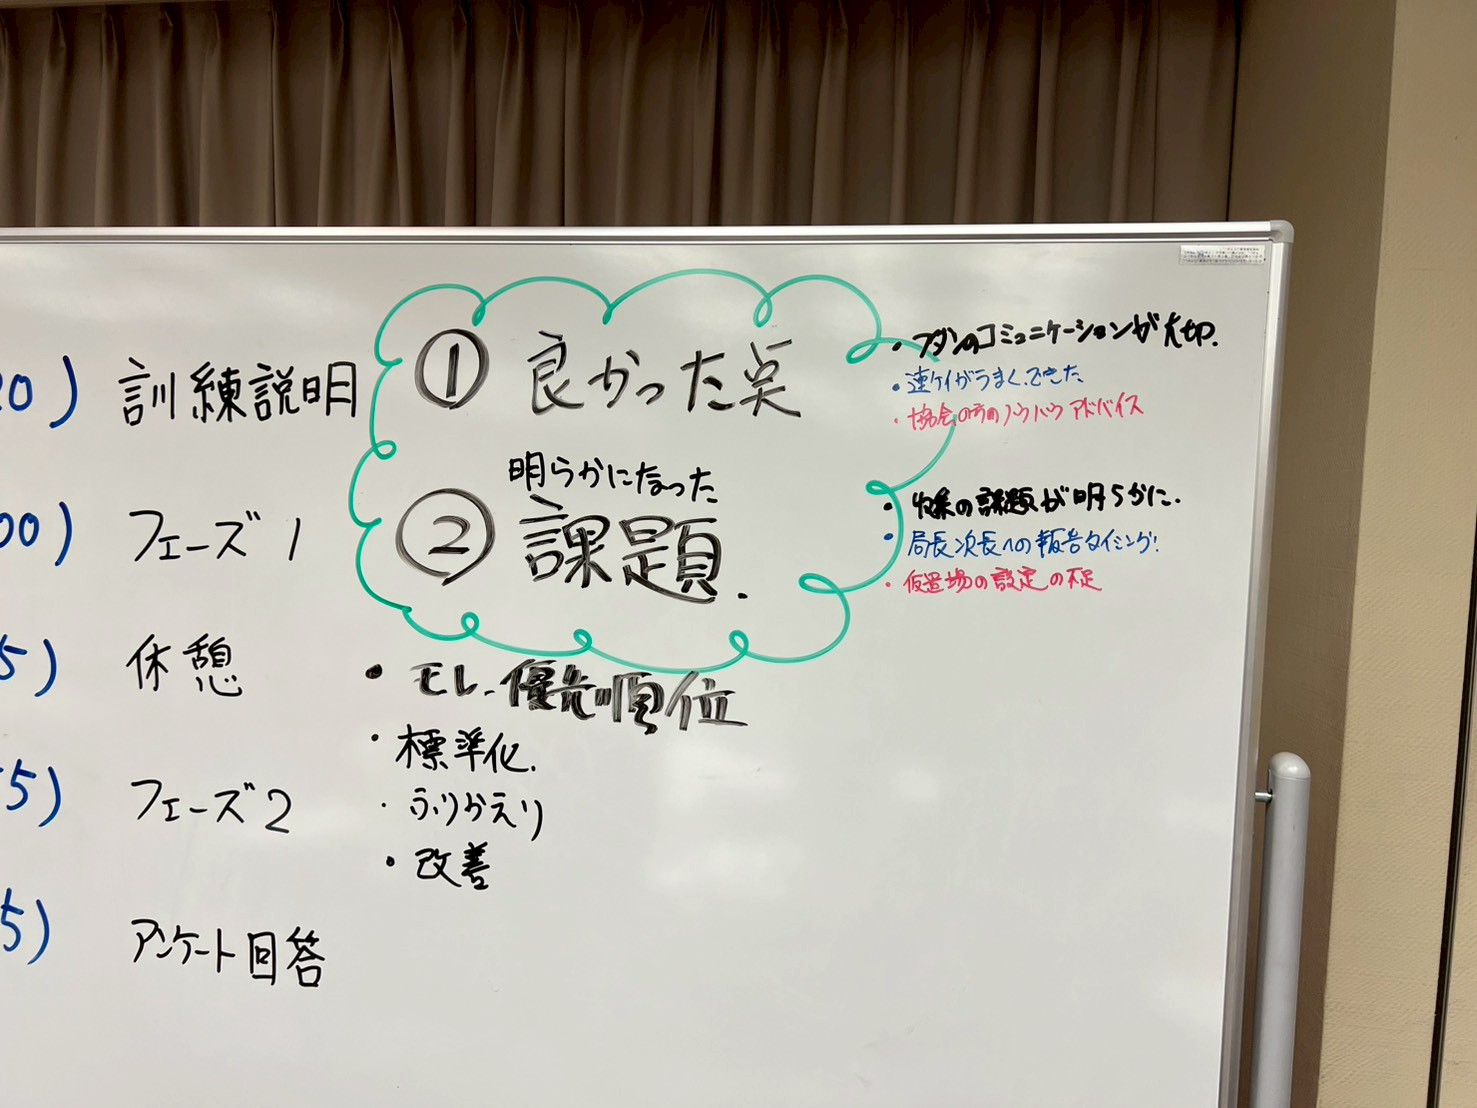 20) 訓練説明
00) フェーズ1
5) 休憩
55) フェーズ2
5) アンケート回答
① 良かった点
明らかになった
② 課題.
・モレ、優先順位
・標準化.
・ふりかえり
・改善
・フダンのコミュニケーションが大切.
・連ケイがうまくできた
・協会の方のノウハウアドバイス
の課題が明らかに.
・局長次長への報告タイミング!
・仮置場の設定の不足